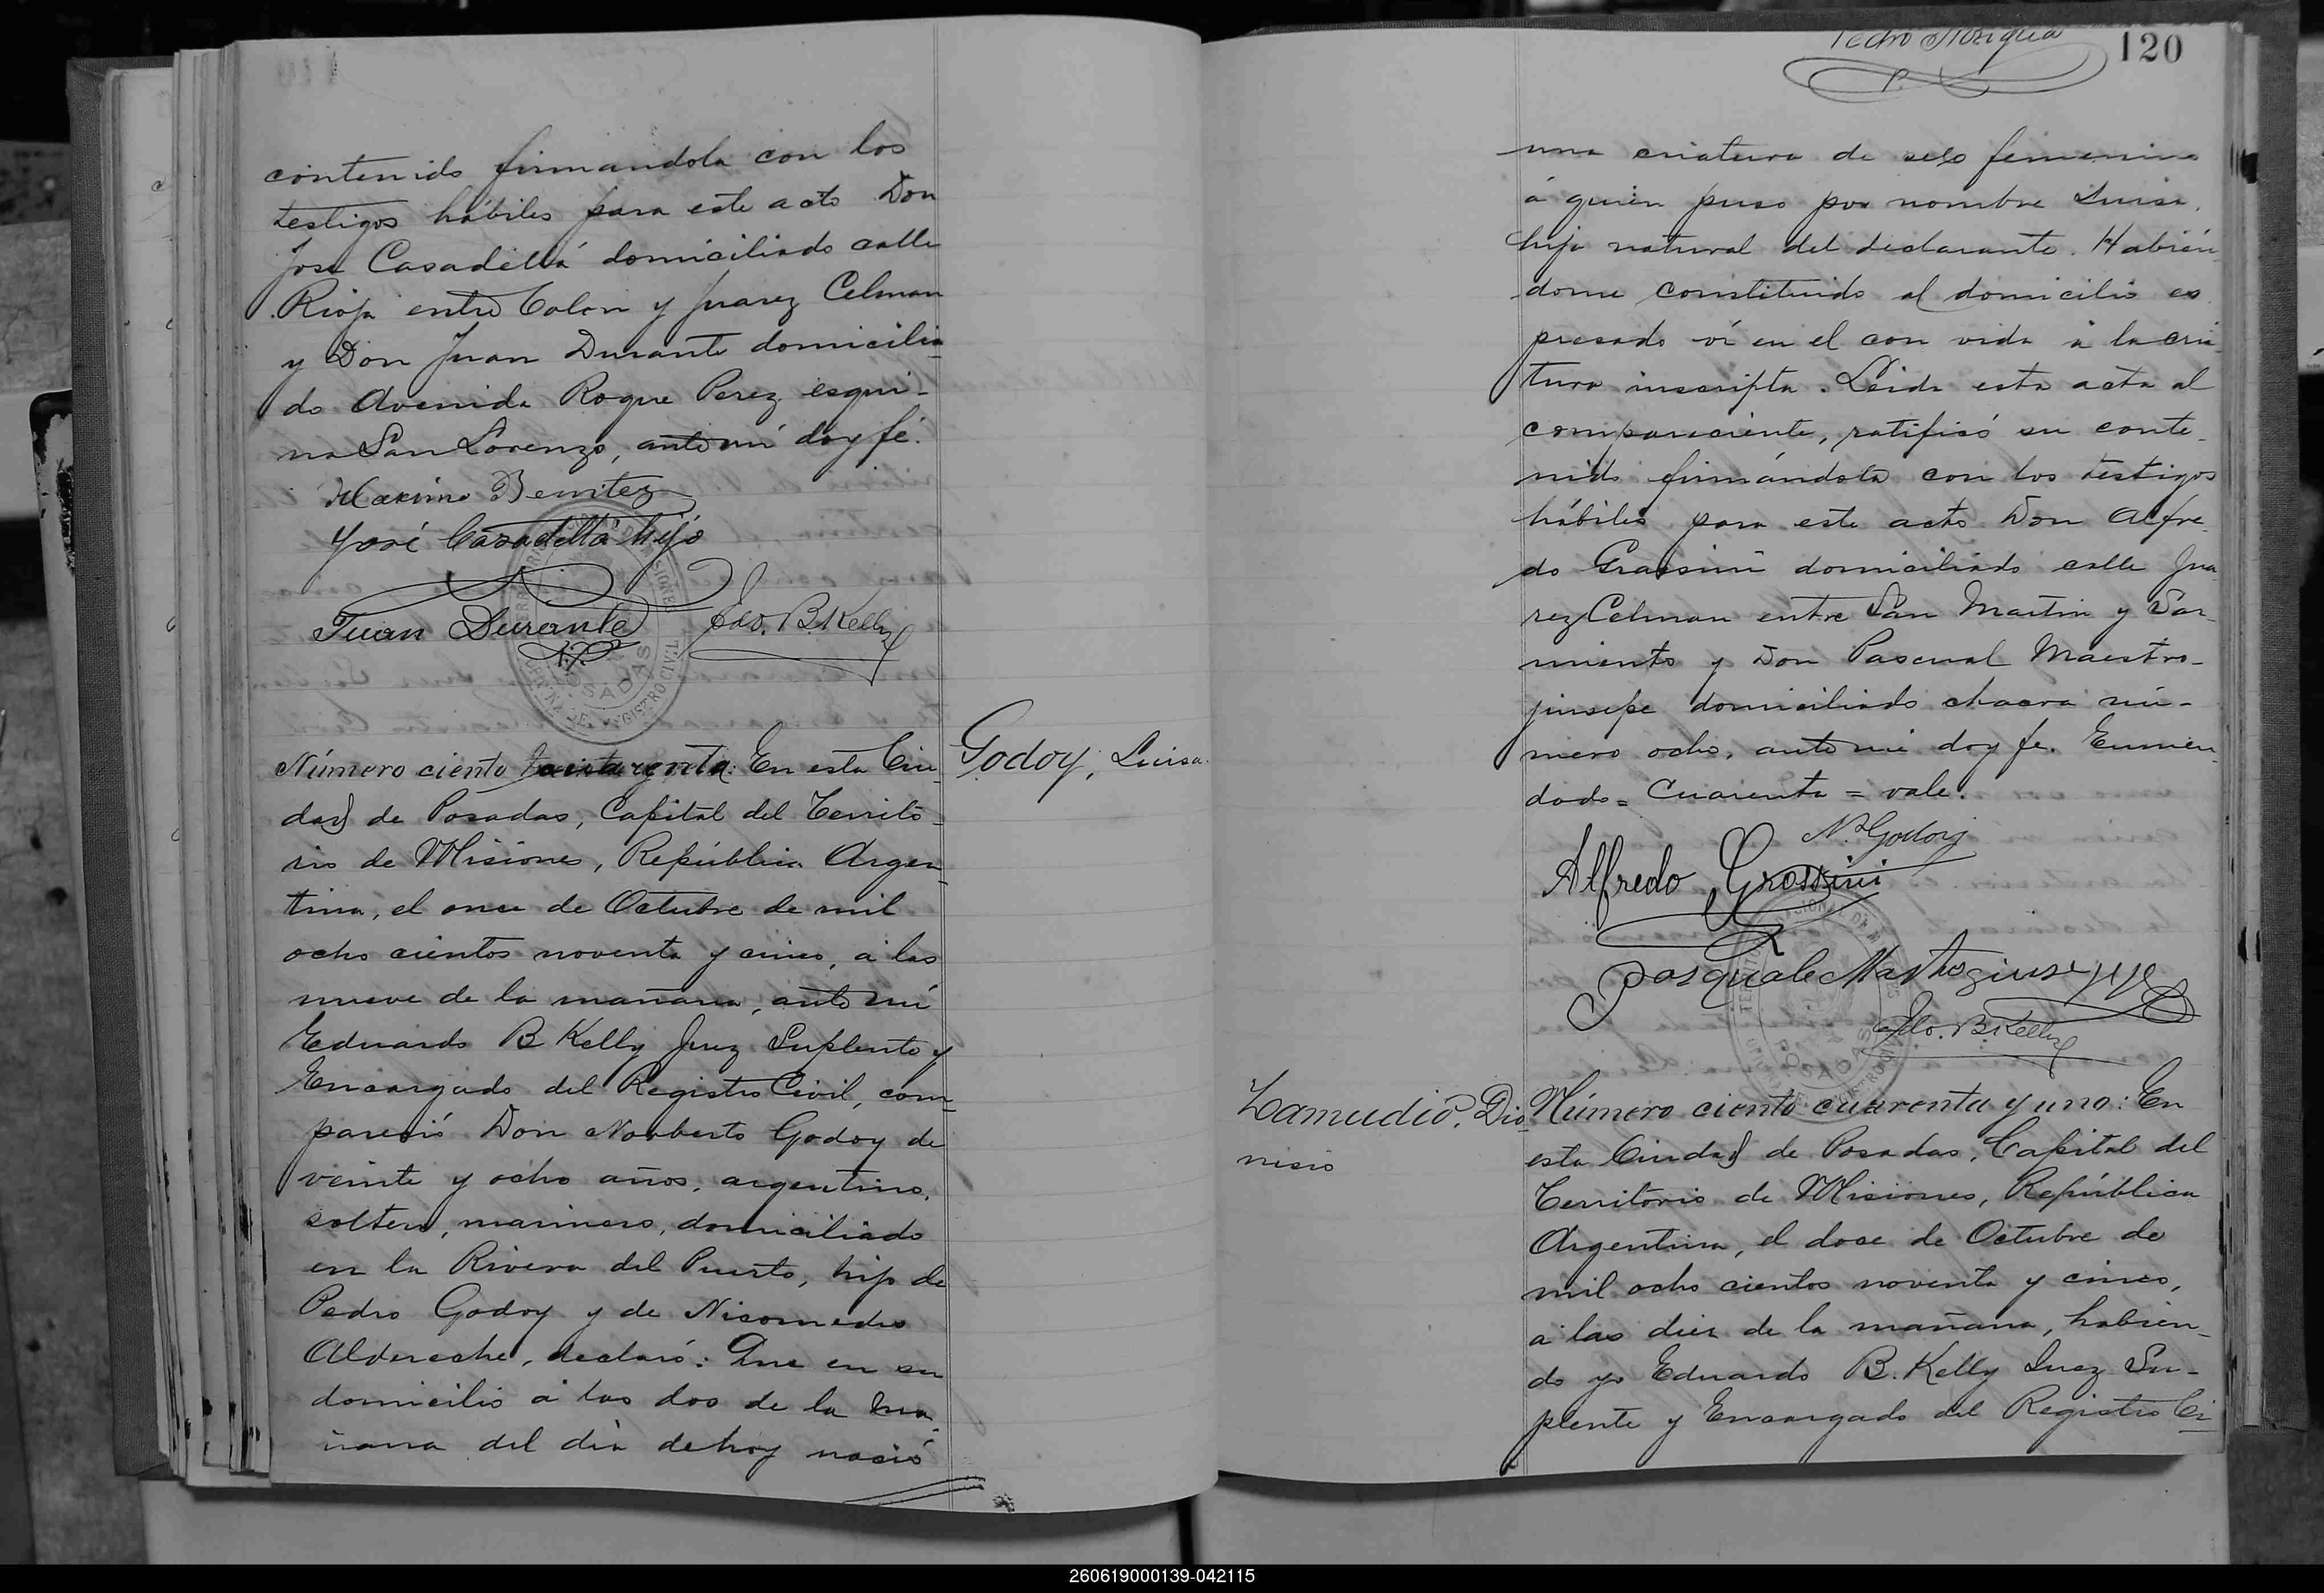 contenido firmandola con los
testigos hábiles para este acto Don
José Casadellá domiciliado calle
Rioja entre Colon y Juarez Celman
y Don Juan Durante domicilia
do Avenida Roque Perez esqui-
na San Lorenzo, ante mí doy fé.
Maximo Benitez
José Casadellá hijo
Juan Durante Edo. B. Kelly
POSADAS
REGISTRO CIVIL
Número ciento cuarenta: En esta Ciu-
dad de Posadas, Capital del Territo-
rio de Misiones, República Argen-
tina, el once de Octubre de mil
ocho cientos noventa y cinco, a las
nueve de la mañana, ante mí
Eduardo B Kelly Juez Suplente y
Encargado del Registro Civil, com-
pareció Don Norberto Godoy de
veinte y ocho años, argentino,
soltero, marinero, domiciliado
en la Rivera del Puerto, hijo de
Pedro Godoy y de Nicomedes
Aldereche, declaró: Que en su
domicilio a las dos de la ma-
ñana del dia de hoy nació
Godoy, Luisa
120
una criatura de sexo femenino
á quien puso por nombre Luisa,
hija natural del declarante. Habién
dome constituido al domicilio es
presado ví en el con vida a la cria
tura inscripta. Leida esta acta al
compareciente, ratificó su conte-
nido firmándola con los testigos
hábiles para este acto Don Alfre-
do Grassini domiciliado calle Jua
rez Celman entre San Martin y Sar-
miento y Don Pascual Maestro-
jiusepe domiciliado chacra nú-
mero ocho, ante mí doy fe. Enmen-
dado = Cuarenta = vale.
N. Godoy
Alfredo Grossini
Pasquale Mastrogiuseppe
Edo. B. Kelly
POSADAS
Zamudio, Dio-
nisio
Número ciento cuarenta y uno: En
esta Ciudad de Posadas, Capital del
Territorio de Misiones, República
Argentina, el doce de Octubre de
mil ocho cientos noventa y cinco,
a las diez de la mañana, habien-
do yo Eduardo B. Kelly Juez Su-
plente y Encargado del Registro Ci-
260619000139-042115